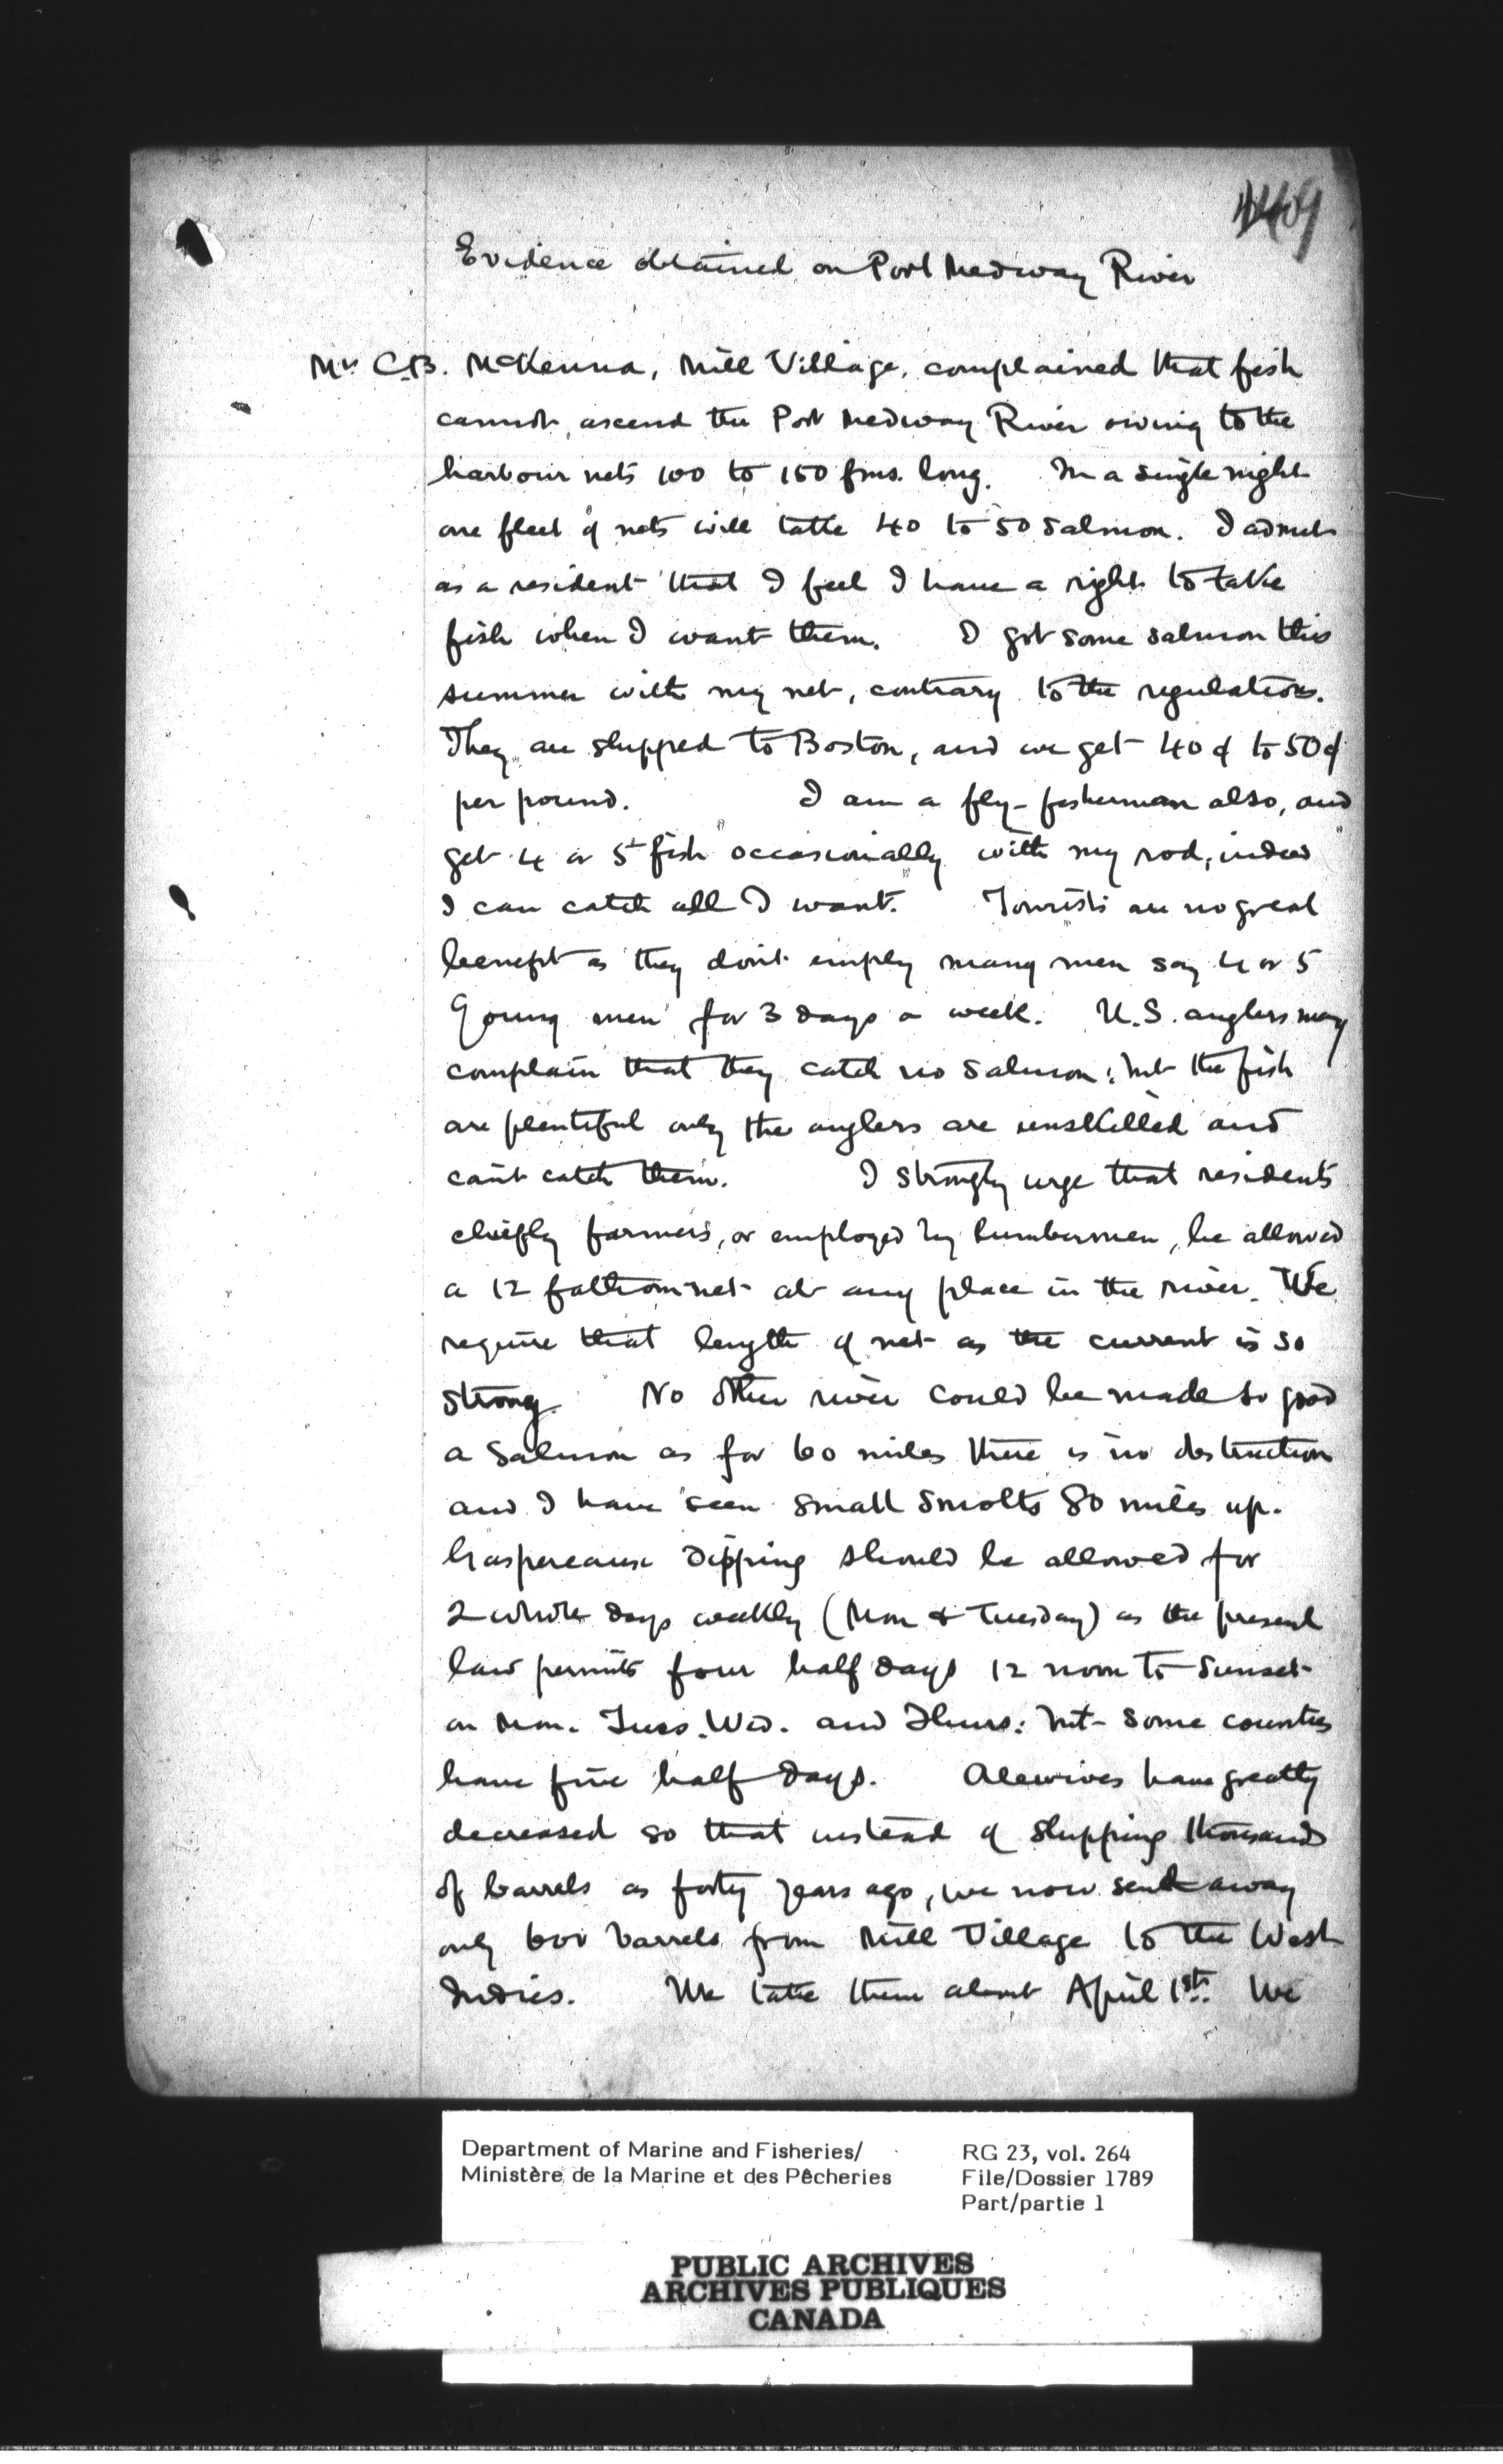 Evidence obtained on Port Medway River
Mr C.B. McKenna, Mill Village, complained that fish
cannot ascend the Port Medway River owing to the
harbour nets 100 to 150 fms. long. In a single night
one fleet of nets will take 40 to 50 salmon. I admit
as a resident that I feel I have a right to take
fish when I want them. I got some salmon this
summer with my net, contrary to the regulations.
They are shipped to Boston, and we get 40¢ to 50¢
per pound. I am a fly-fisherman also, and
get 4 or 5 fish occasionally with my rod, indeed
I can catch all I want. Tourists are no great
benefit as they don't employ many men say 4 or 5
young men for 3 days a week. U.S. anglers may
complain that they catch no salmon; but the fish
are plentiful only the anglers are unskilled and
can't catch them. I strongly urge that residents
chiefly farmers, or employed by lumbermen, be allowed
a 12 fathom net at any place in the river. We
require that length of net as the current is so
strong. No other river could be made so good
a salmon as for 60 miles there is no obstruction
and I have seen small smolts 80 miles up.
Gaspereaux dipping should be allowed for
2 whole days weekly (Mon & Tuesday) as the present
law permits four half days 12 noon to sunset
on Mon. Tues. Wed. and Thurs: but some counties
have five half days. Alewives have greatly
decreased so that instead of shipping thousands
of barrels as forty years ago, we now send away
only 600 barrels from Mill Village to the West
Indies. We take them about April 1st. We
Department of Marine and Fisheries/
Ministère de la Marine et des Pêcheries
RG 23, vol. 264
File/Dossier 1789
Part/partie 1
PUBLIC ARCHIVES
ARCHIVES PUBLIQUES
CANADA